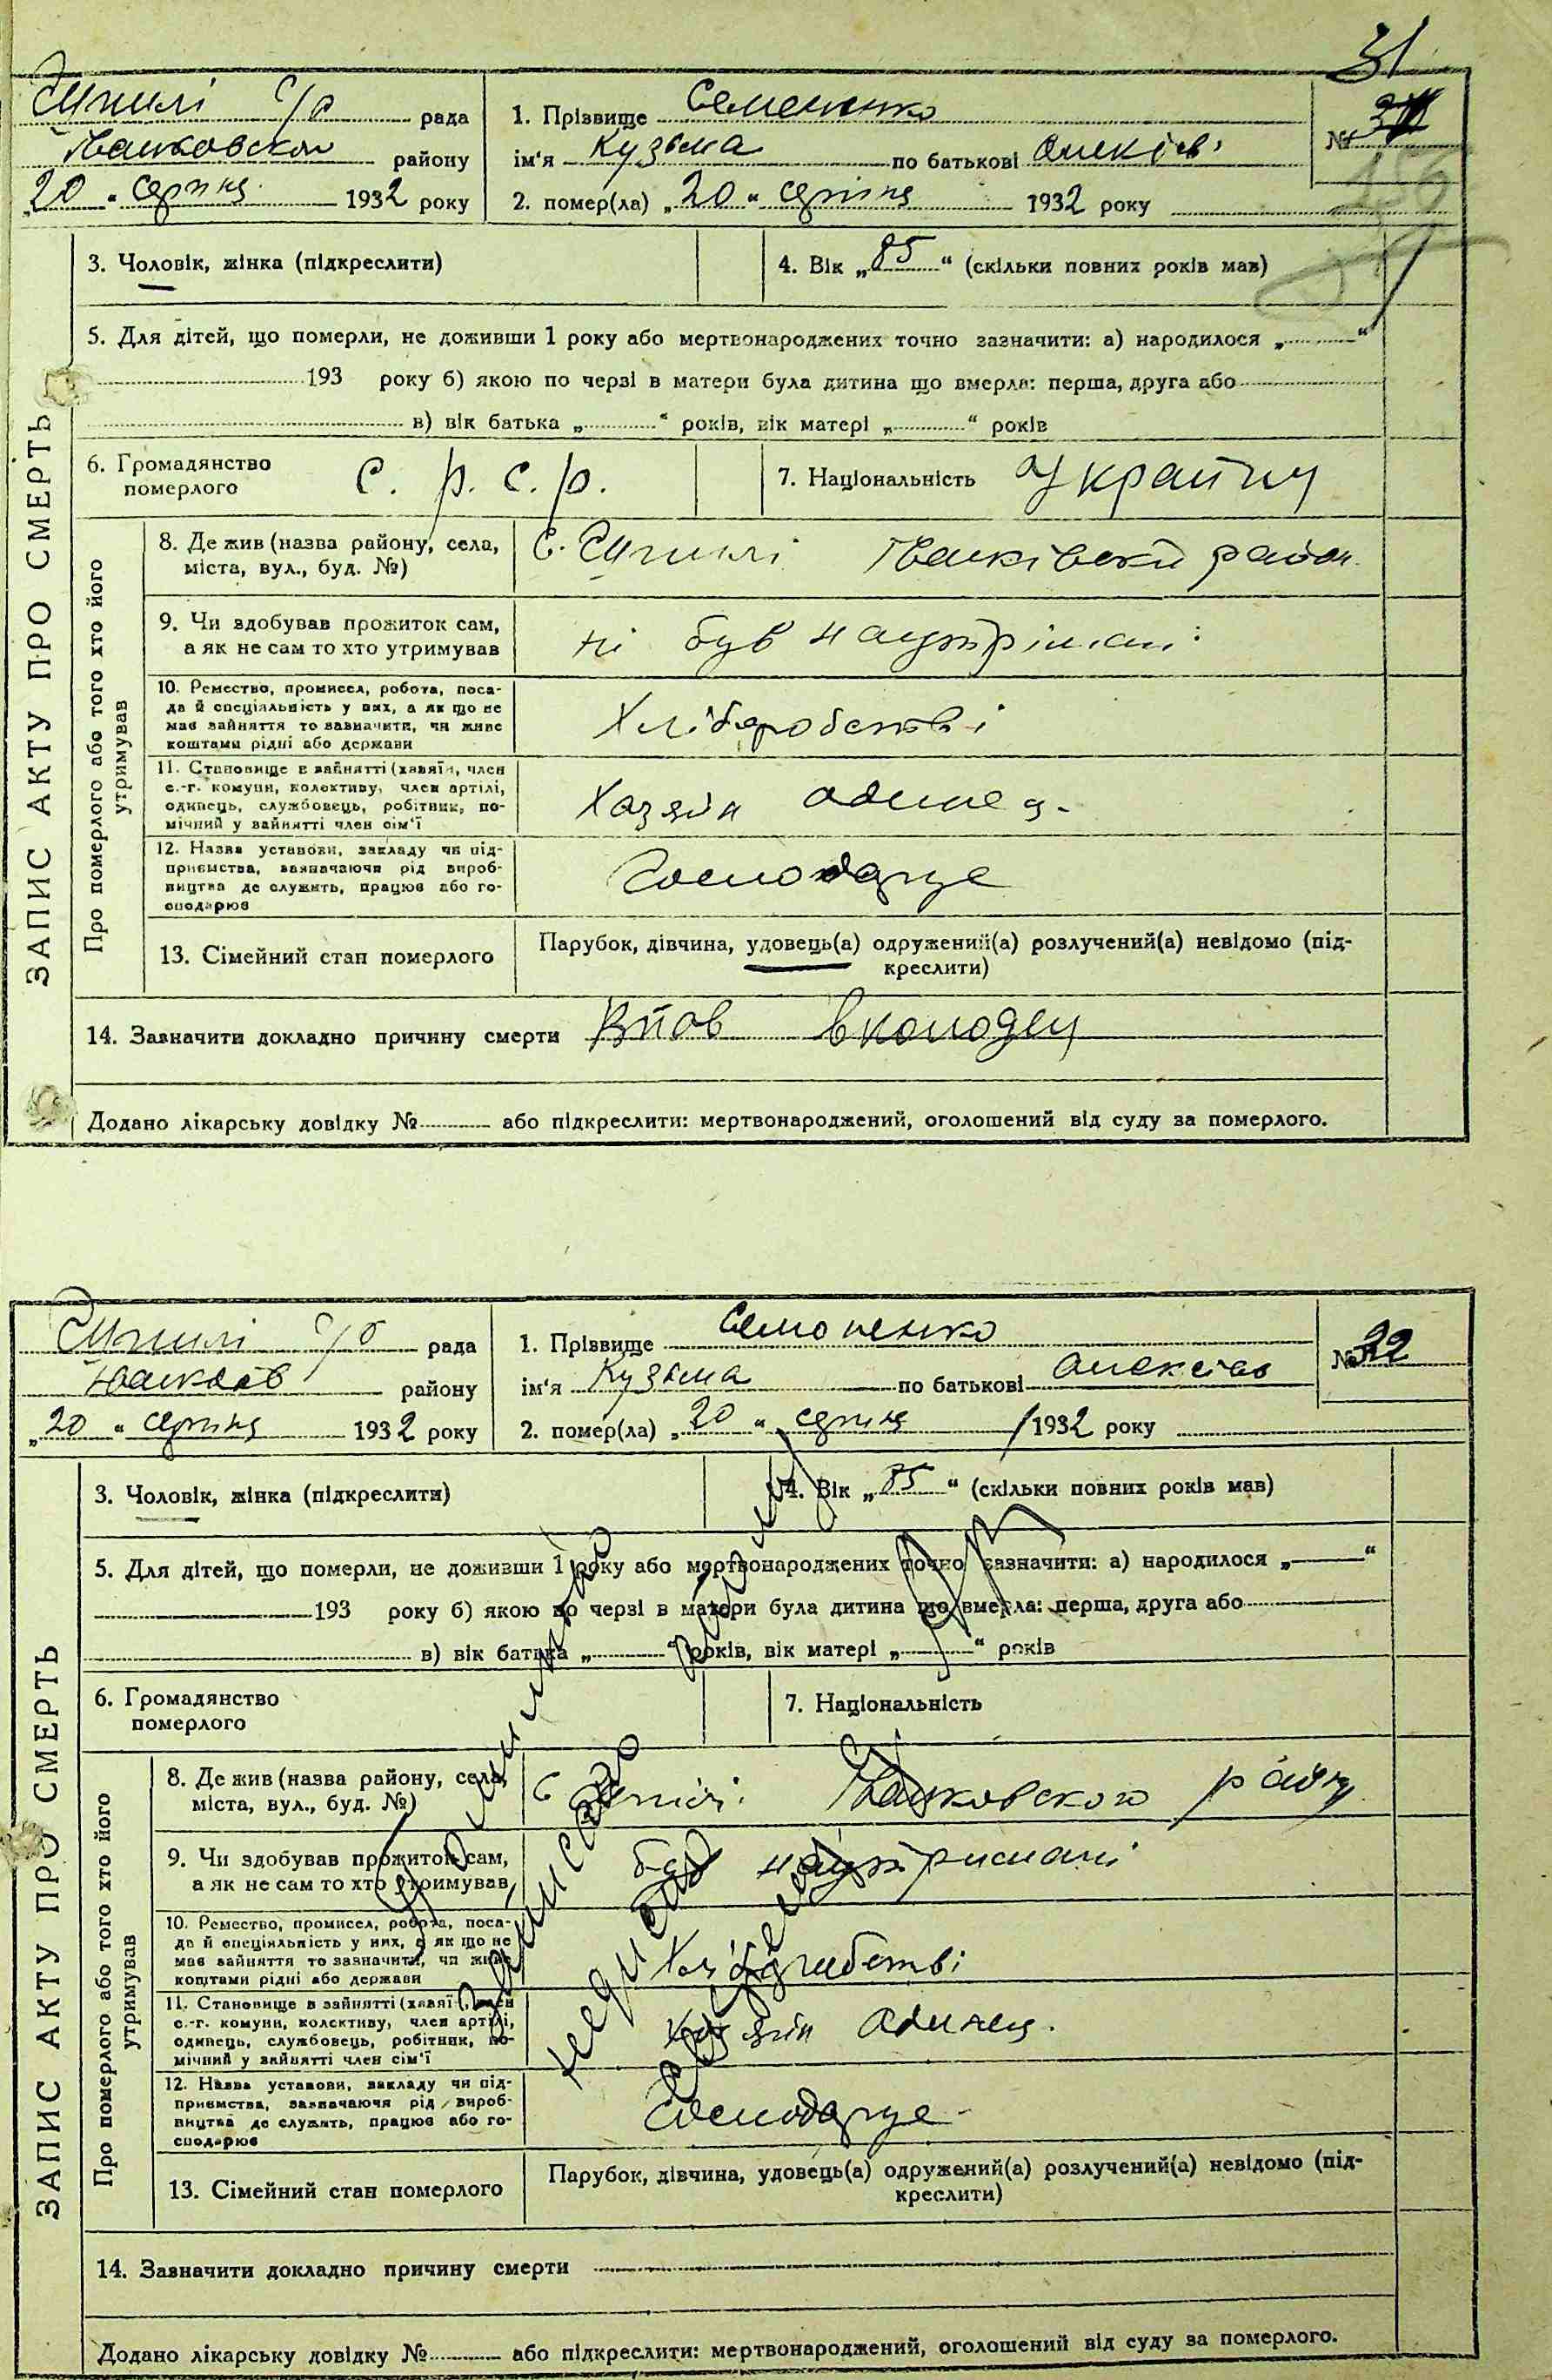 31
рада
району
20 серпня 1932 року
1. Прізвище Семененко
ім'я Кузьма по батькові Олексієв
2. помер(ла) „20" серпня 1932 року
№
156
ЗАПИС АКТУ ПРО СМЕРТЬ
3. Чоловік, жінка (підкреслити)
4. Вік „85" (скільки повних років мав)
5. Для дітей, що померли, не доживши 1 року або мертвонароджених точно зазначити: а) народилося „ "
193 року б) якою по черзі в матери була дитина що вмерла: перша, друга або
в) вік батька „ " років, вік матері „ " років
6. Громадянство
померлого
С. р. с. р.
7. Національність
Про померлого або того хто його
утримував
8. Де жив (назва району, села,
міста, вул., буд. №)
9. Чи здобував прожиток сам,
а як не сам то хто утримував
ні був
10. Ремество, промисел, робота, поса-
да й спеціяльність у них, а як що не
має зайняття то зазначити, чи живе
коштами рідні або держави
11. Становище в зайнятті (хазяїн, член
с.-г. комуни, колективу, член артілі,
одинець, службовець, робітник, по-
мічний у зайнятті член сім'ї
Хазяін
12. Назва установи, закладу чи під-
приємства, зазначаючи рід вироб-
ництва де служить, працює або го-
сподарює
Господарує
13. Сімейний стан померлого
Парубок, дівчина, удовець(а) одружений(а) розлучений(а) невідомо (під-
креслити)
14. Зазначити докладно причину смерти Впов в колодец
Додано лікарську довідку № або підкреслити: мертвонароджений, оголошений від суду за померлого.
рада
району
„20" серпня 1932 року
1. Прізвище Семоненко
ім'я Кузьма по батькові Олексієв
2. помер(ла) „20" серпня 1932 року
№ 32
ЗАПИС АКТУ ПРО СМЕРТЬ
3. Чоловік, жінка (підкреслити)
4. Вік „85" (скільки повних років мав)
5. Для дітей, що померли, не доживши 1 року або мертвонароджених точно зазначити: а) народилося „ "
193 року б) якою по черзі в матери була дитина що вмерла: перша, друга або
в) вік батька „ " років, вік матері „ " років
6. Громадянство
померлого
7. Національність
Про померлого або того хто його
утримував
8. Де жив (назва району, села,
міста, вул., буд. №)
9. Чи здобував прожиток сам,
а як не сам то хто утримував
10. Ремество, промисел, робота, поса-
да й спеціяльність у них, а як що не
має зайняття то зазначити, чи живе
коштами рідні або держави
11. Становище в зайнятті (хазяїн, член
с.-г. комуни, колективу, член артілі,
одинець, службовець, робітник, по-
мічний у зайнятті член сім'ї
12. Назва установи, закладу чи під-
приємства, зазначаючи рід вироб-
ництва де служить, працює або го-
сподарює
Господарує
13. Сімейний стан померлого
Парубок, дівчина, удовець(а) одружений(а) розлучений(а) невідомо (під-
креслити)
14. Зазначити докладно причину смерти
Додано лікарську довідку № або підкреслити: мертвонароджений, оголошений від суду за померлого.